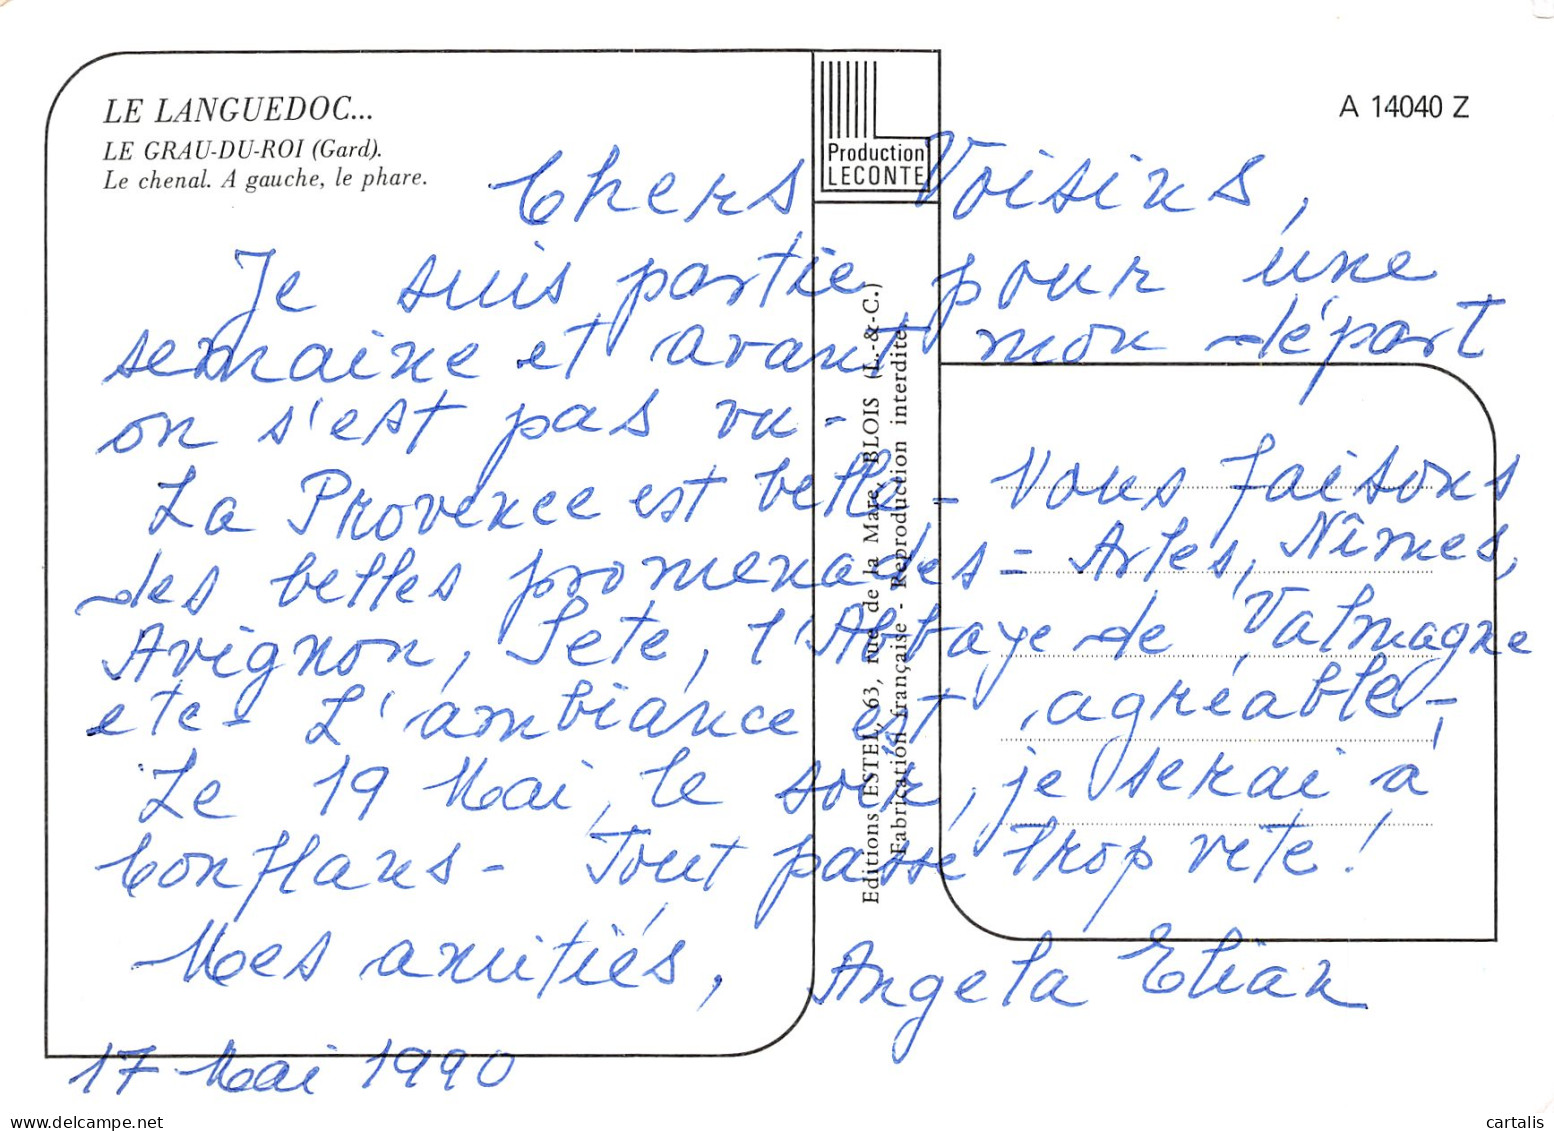 LE LANGUEDOC...
LE GRAU-DU-ROI (Gard).
Le chenal. A gauche, le phare.
A 14040 Z
Production
LECONTE
Editions ESTEL, 63, rue de la Mare, BLOIS (L.-&-C.)
Fabrication française - Reproduction interdite.
Chers Voisins,
Je suis partie pour une
semaine et avant mon départ
on s'est pas vu -
La Provence est belle - Nous faisons
des belles promenades = Arles, Nîmes,
Avignon, Sete, l'Abbaye de Valmagne
etc - L'ambiance est agréable -
Le 19 Mai, le soir, je serai à
Conflans - Tout passe trop vite !
Mes amitiés, Angela Elian
17 Mai 1990
www.delcampe.net
cartalis